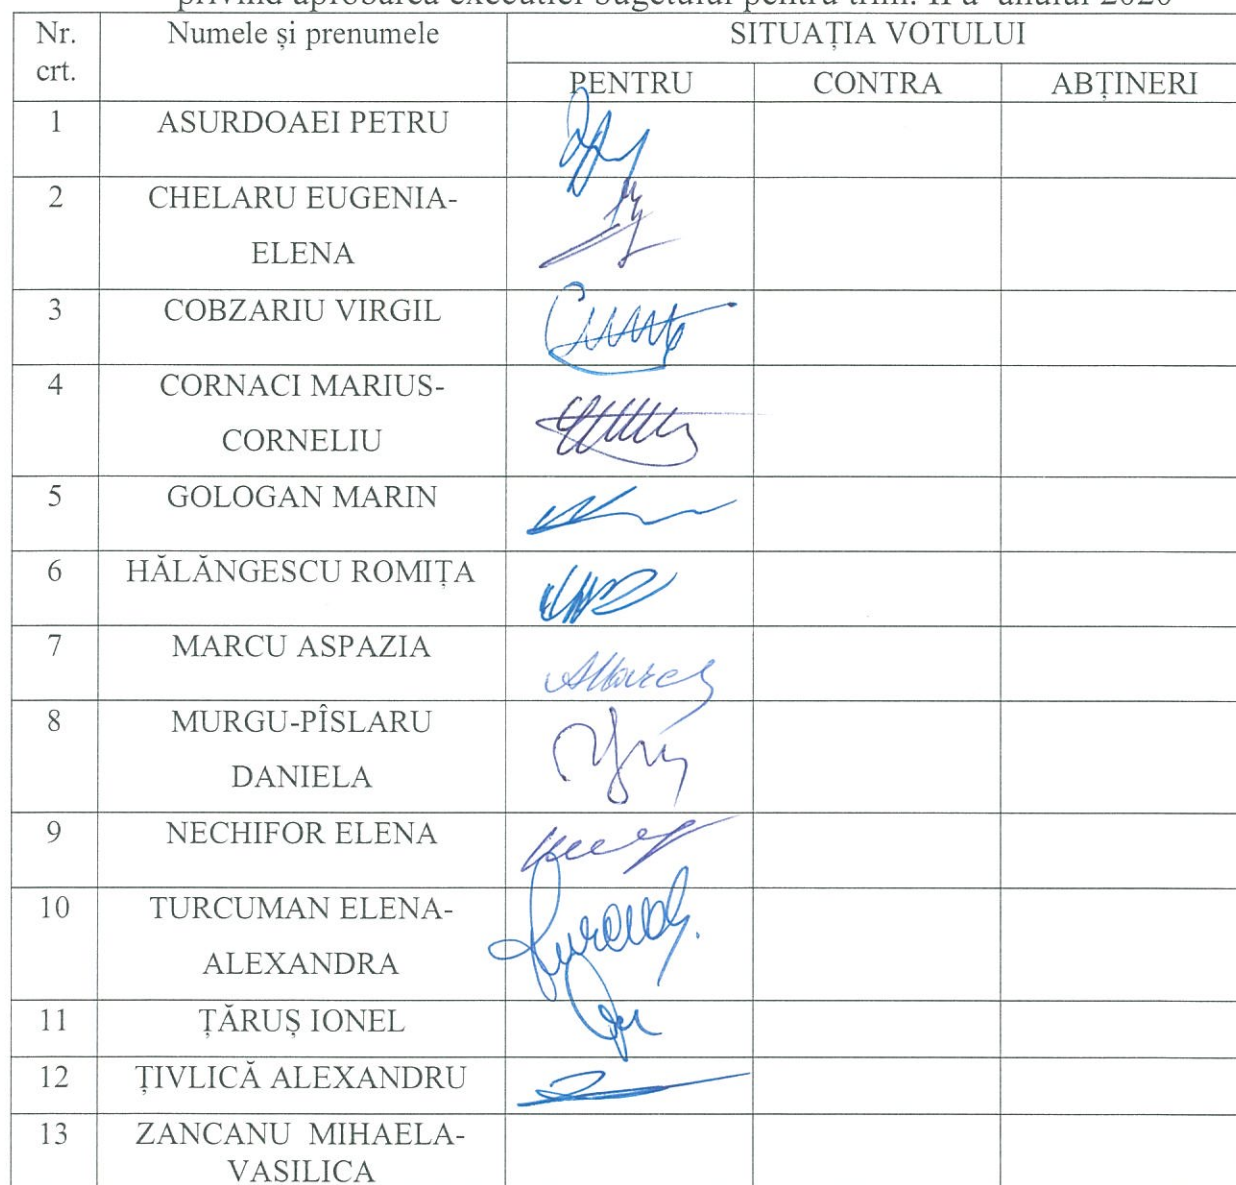 privind aprobarea execuției bugetului pentru trim. II a anului 2020
Nr. crt.
Numele și prenumele
SITUAȚIA VOTULUI
PENTRU
CONTRA
ABȚINERI
1 ASURDOAEI PETRU
2 CHELARU EUGENIA-
ELENA
3 COBZARIU VIRGIL
4 CORNACI MARIUS-
CORNELIU
5 GOLOGAN MARIN
6 HĂLĂNGESCU ROMIȚA
7 MARCU ASPAZIA
8 MURGU-PÎSLARU
DANIELA
9 NECHIFOR ELENA
10 TURCUMAN ELENA-
ALEXANDRA
11 ȚĂRUȘ IONEL
12 ȚIVLICĂ ALEXANDRU
13 ZANCANU MIHAELA-
VASILICA